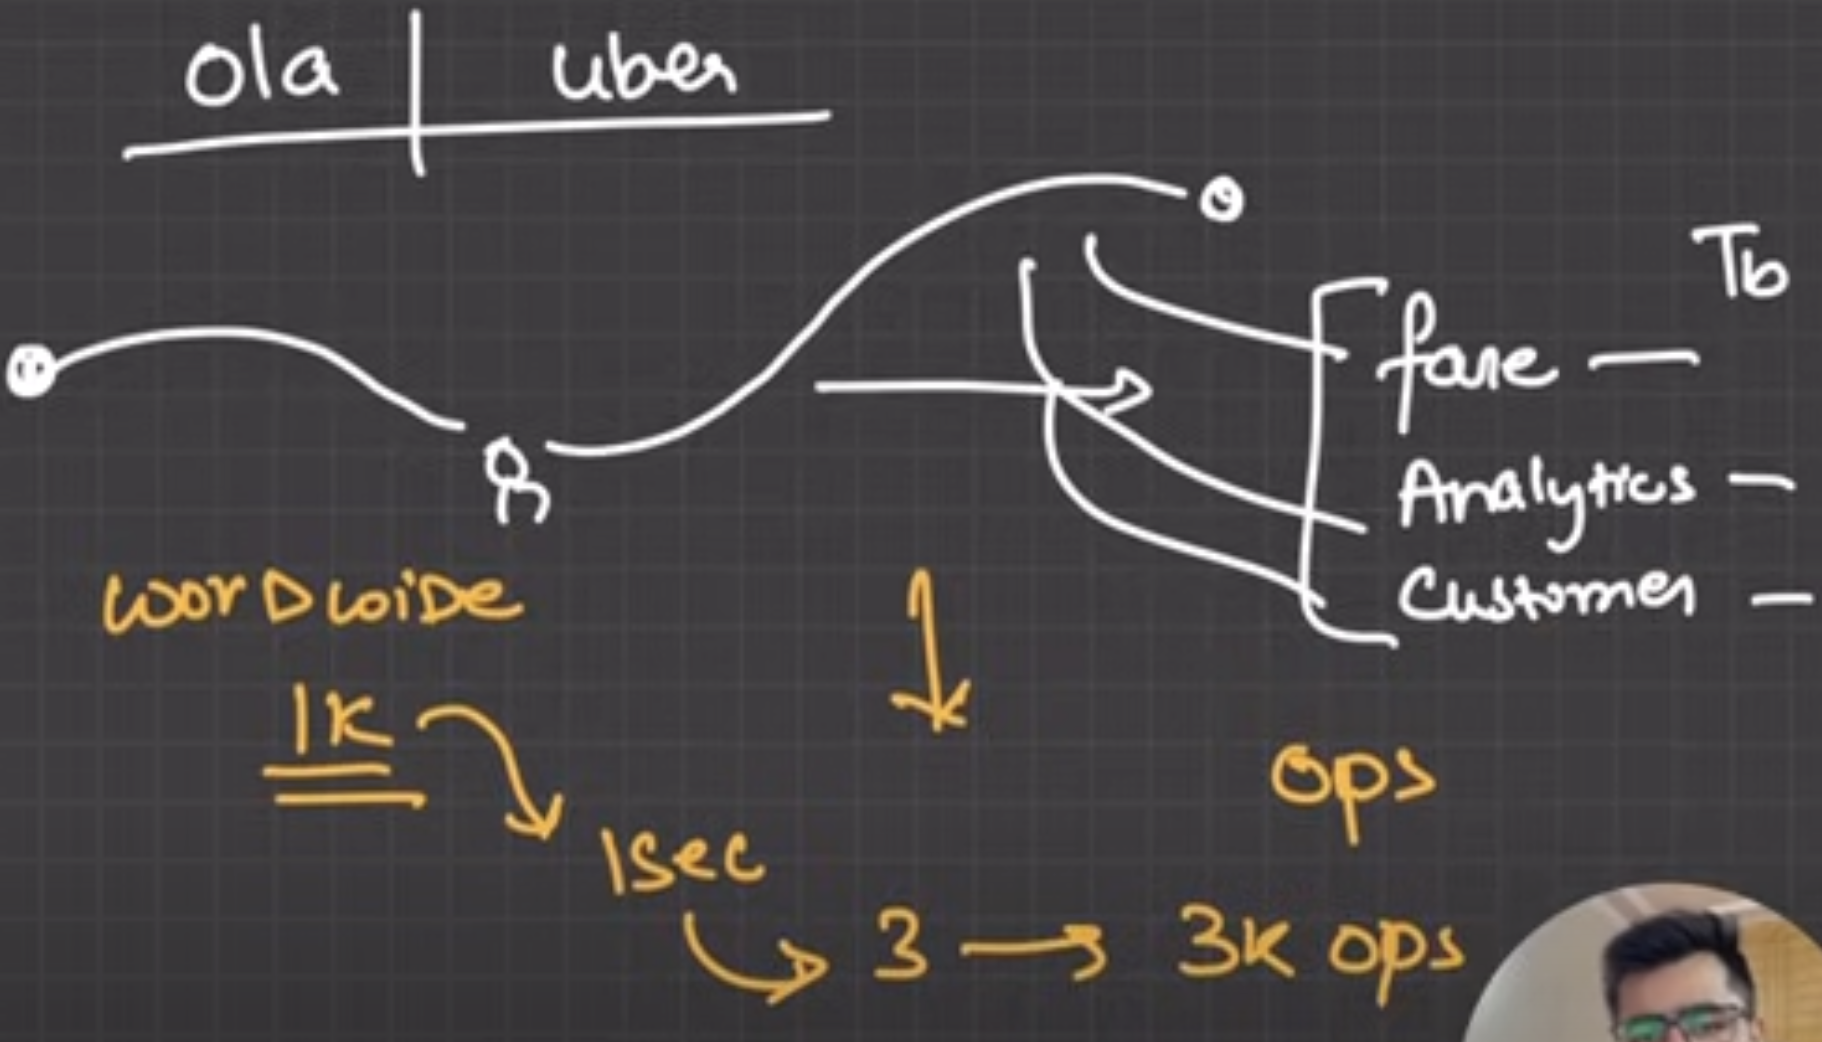 Ola | Uber
Tb
fare —
Analytics —
Customer —
WorDwiDe
1K
ops
1sec
3 → 3K ops